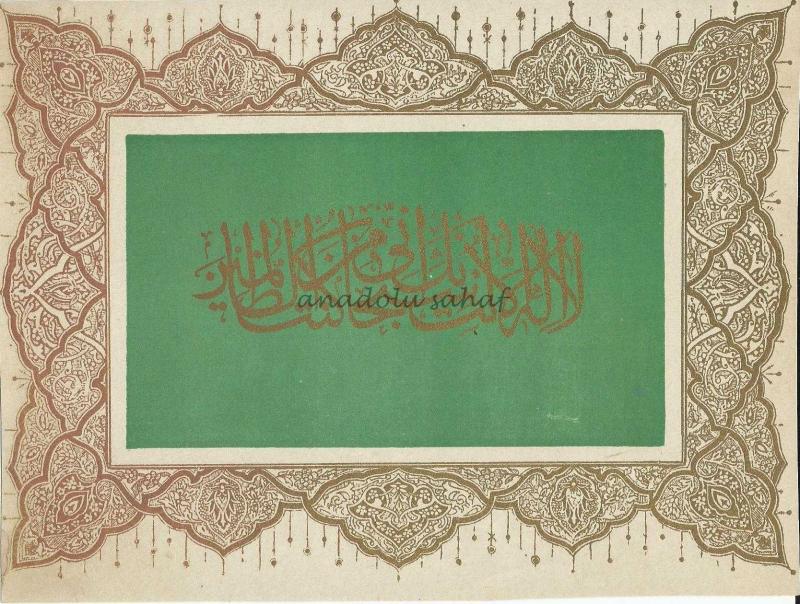 لا إله إلا أنت سبحانك إني كنت من الظالمين
anadolu sahaf